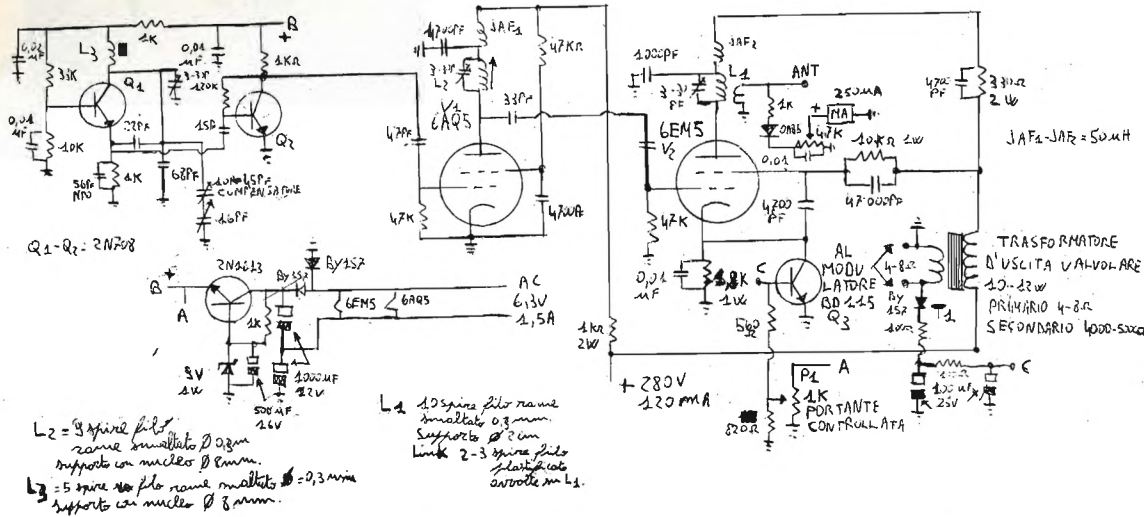 B
+
0,02
µF
L3
1K
0,01
µF
1KΩ
33K
Q1
3-33P
120K
0,01
µF
10K
22PF
15P
Q2
56PF
NPO
1K
68PF
10÷45PF
COMPENSATORE
16PF
Q1-Q2= 2N708
4700PF
JAF1
3-33P
L2
V1
6AQ5
47KΩ
33PF
47PF
47K
4700P
1000PF
JAF2
L1
3-30
PF
ANT
1K
OA85
+
MA
250µA
4,7K
0,01
6EM5
V2
10KΩ 1W
47000PF
4700
PF
330Ω
2W
JAF1-JAF2=50µH
47K
4700
PF
0,01
µF
1,8K
1W
C
AL
MODU
LATORE
BD115
Q3
4-8Ω
T1
BY
157
10Ω
TRASFORMATORE
D'USCITA VALVOLARE
10-12W
PRIMARIO 4-8Ω
SECONDARIO 4000-5000Ω
560
Ω
820Ω
P1
A
1K
PORTANTE
CONTROLLATA
100Ω
100µF
25V
C
1KΩ
2W
+280V
120mA
+
B
2N1613
A
BY157
BY157
1K
6EM5
6AQ5
AC
6,3V
1,5A
9V
1W
500µF
16V
1000µF
12V
L2= 9 spire filo
rame smaltato Ø 0,3mm
supporto con nucleo Ø 8mm.
L3=5 spire filo rame smaltato Ø=0,3mm
supporto con nucleo Ø 8mm.
L1 10 spire filo rame
smaltato 0,3mm
Supporto Ø 2cm
Link 2-3 spire filo
plastificato
avvolte su L1.